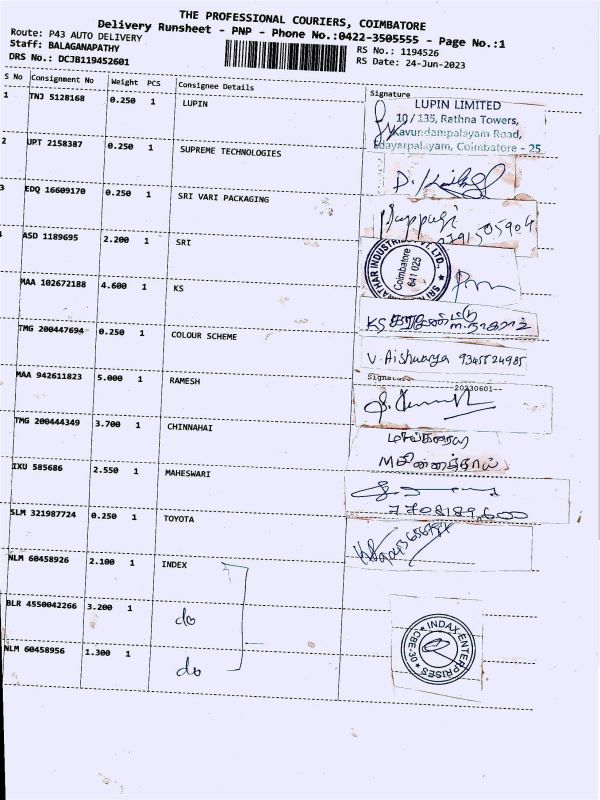 THE PROFESSIONAL COURIERS, COIMBATORE
Delivery Runsheet - PNP - Phone No.:0422-3505555 - Page No.:1
Route: P43 AUTO DELIVERY
Staff: BALAGANAPATHY
RS No.: 1194526
DRS No.: DCJB119452601
RS Date: 24-Jun-2023
S No Consignment No Weight PCS Consignee Details Signature
1 TNJ 5128168 0.250 1 LUPIN
LUPIN LIMITED
10 / 135, Rathna Towers,
Kavundampalayam Road,
Edayarpalayam, Coimbatore - 25
2 UPT 2158387 0.250 1 SUPREME TECHNOLOGIES
3 EDQ 16609170 0.250 1 SRI VARI PACKAGING
4 ASD 1189695 2.200 1 SRI
Coimbatore
641 025
MAA 102672188 4.600 1 KS
KS
TMG 200447694 0.250 1 COLOUR SCHEME
V. Aishwarya 9345524985
Signature
--20230601--
MAA 942611823 5.000 1 RAMESH
TMG 200444349 3.700 1 CHINNAHAI
IXU 585686 2.550 1 MAHESWARI
7708189600
SLM 321987724 0.250 1 TOYOTA
NLM 60458926 2.100 1 INDEX
BLR 4550042266 3.200 1 do
NLM 60458956 1.300 1 do
INDAX ENTERPRISES
CBE-30